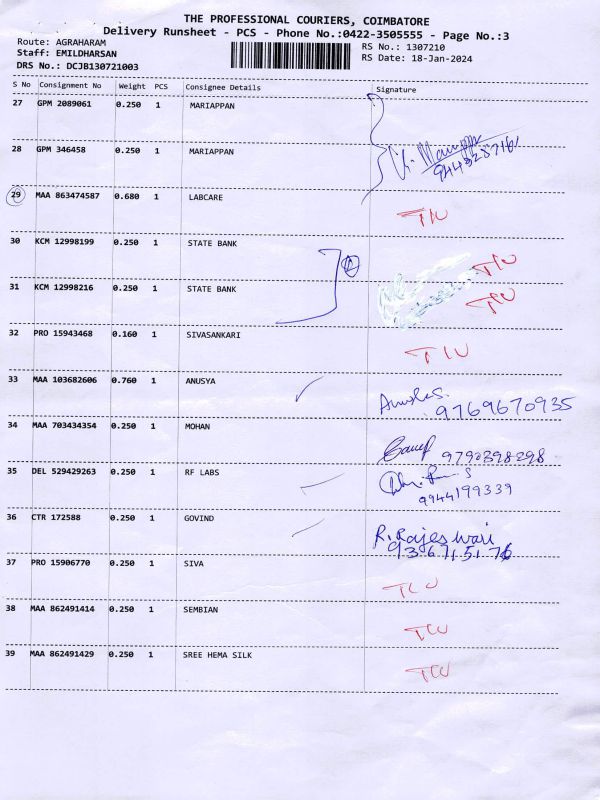 THE PROFESSIONAL COURIERS, COIMBATORE
Delivery Runsheet - PCS - Phone No.:0422-3505555 - Page No.:3
Route: AGRAHARAM
Staff: EMILDHARSAN
DRS No.: DCJB130721003
RS No.: 1307210
RS Date: 18-Jan-2024
S No Consignment No Weight PCS Consignee Details Signature
27 GPM 2089061 0.250 1 MARIAPPAN
28 GPM 346458 0.250 1 MARIAPPAN
29 MAA 863474587 0.680 1 LABCARE
30 KCM 12998199 0.250 1 STATE BANK
31 KCM 12998216 0.250 1 STATE BANK
32 PRO 15943468 0.160 1 SIVASANKARI
33 MAA 103682606 0.760 1 ANUSYA
9769670935
34 MAA 703434354 0.250 1 MOHAN
9790398298
35 DEL 529429263 0.250 1 RF LABS
9944199339
36 CTR 172588 0.250 1 GOVIND R. Rajeswari
37 PRO 15906770 0.250 1 SIVA
38 MAA 862491414 0.250 1 SEMBIAN
39 MAA 862491429 0.250 1 SREE HEMA SILK